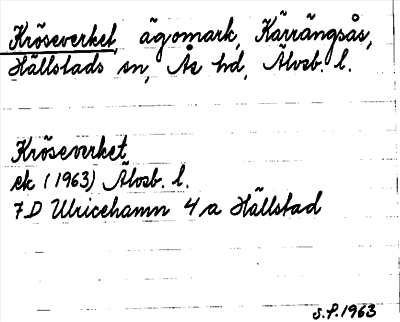 Kröseverket, ägomark, Kärrängsås,
Hällstads sn, Ås hd, Älvsb. l.
Kröseverket
ek (1963) Älvsb. l.
7D Ulricehamn 4a Hällstad
S.P. 1963